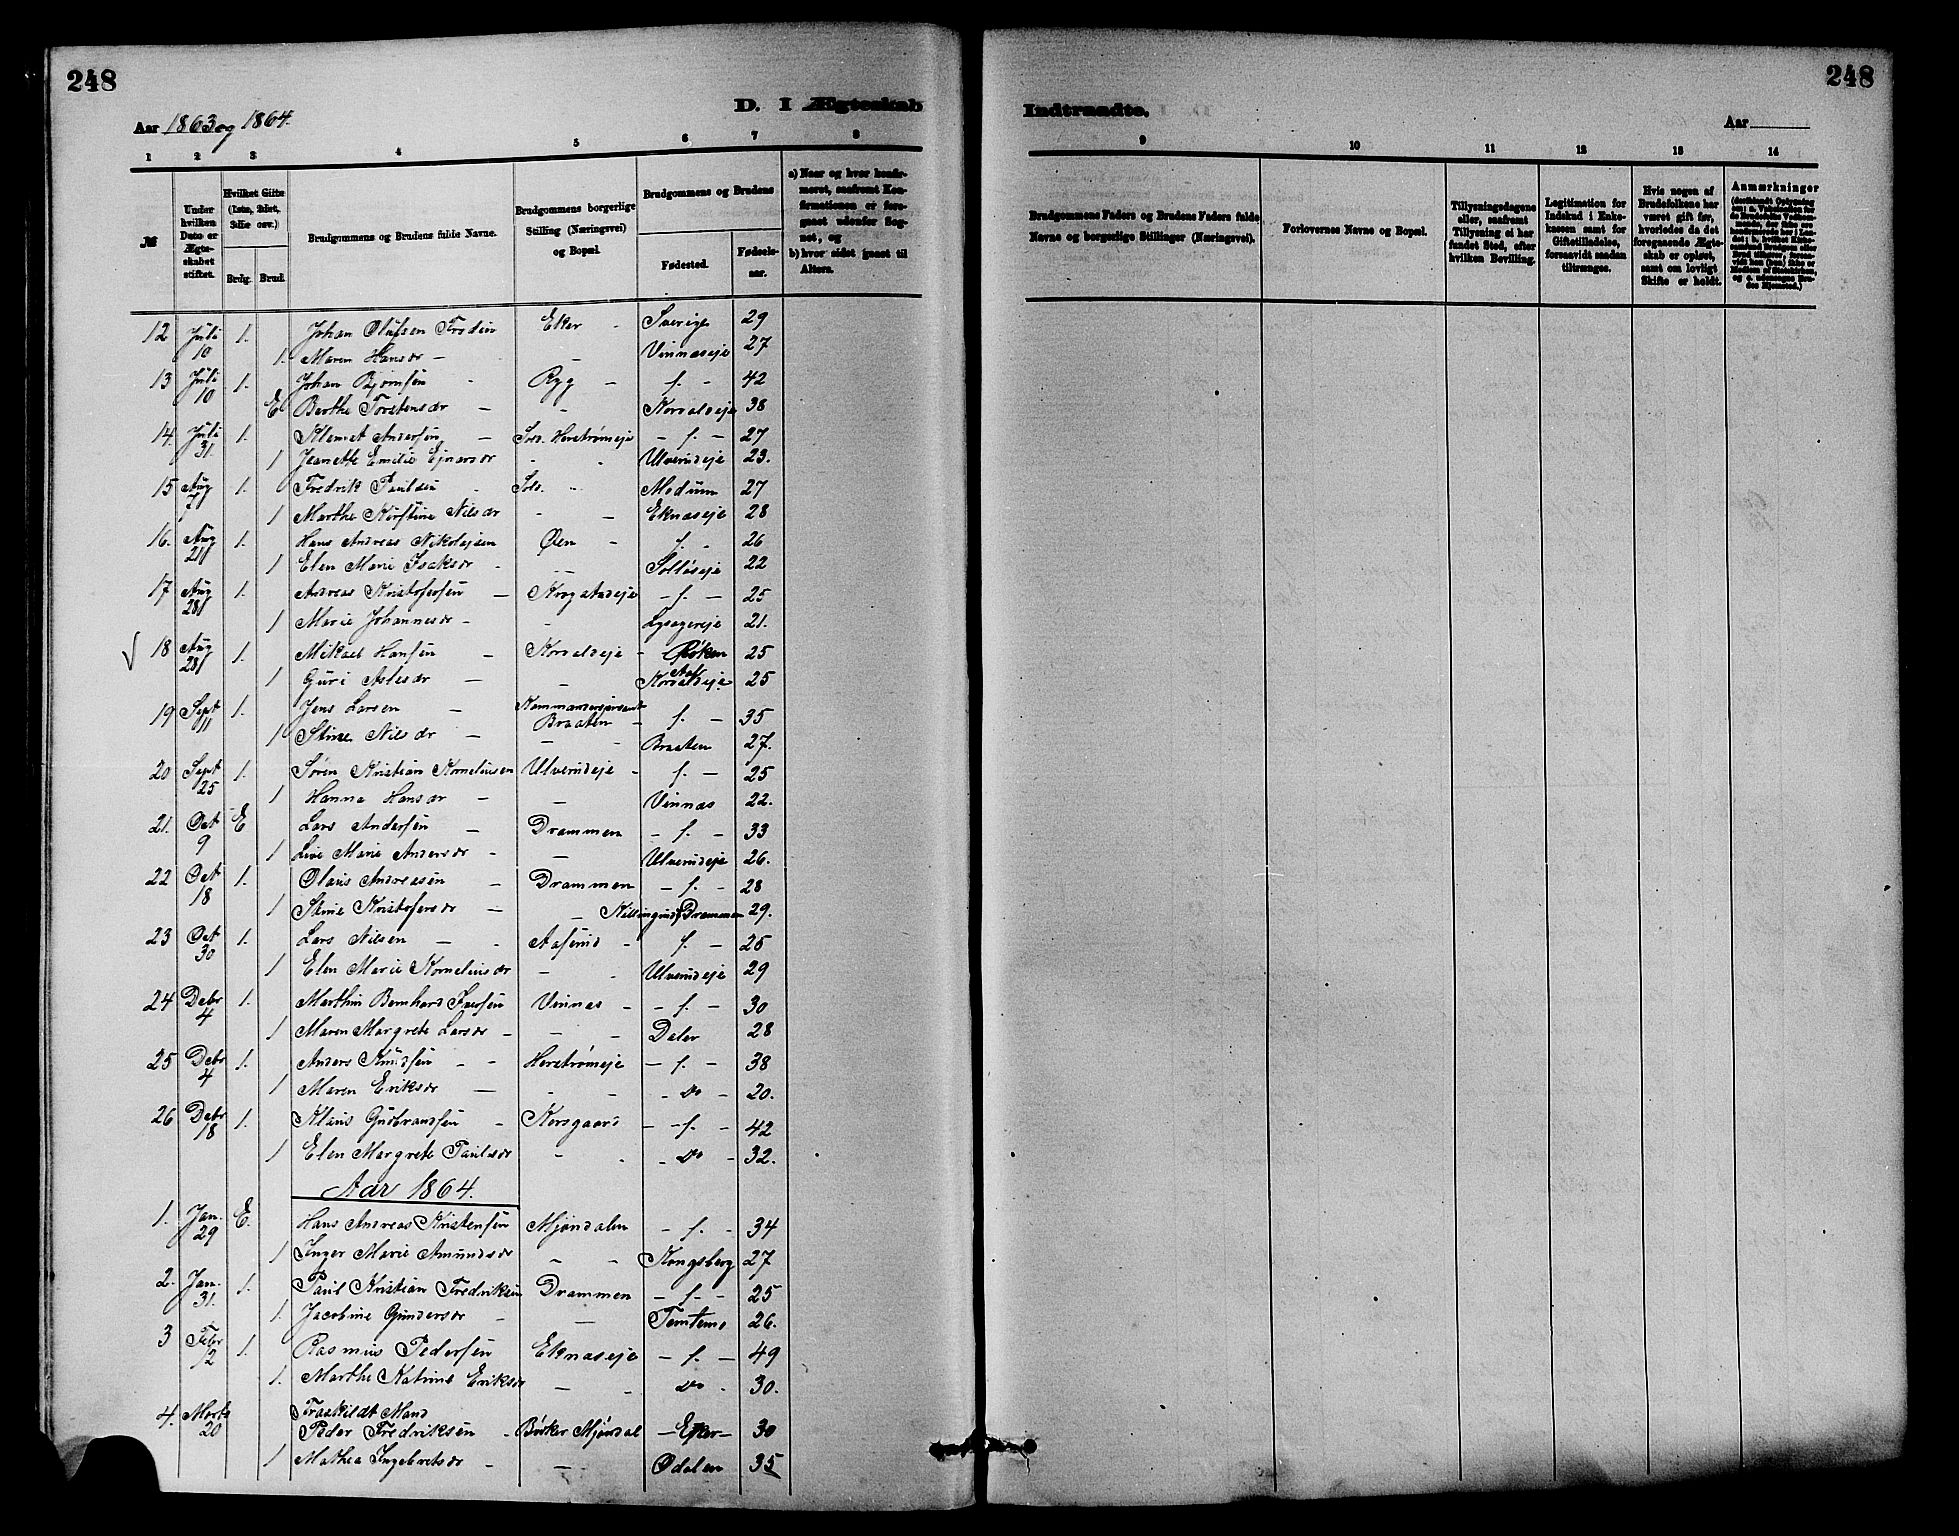 248
248
D. I Ægteskab
Indtraadte.
Aar 1863 og 1864.
Aar
1 2 3 4 5 6 7 8
9 10 11 12 13 14
№
Under hvilken Dato er Ægteskabet stiftet.
Hvilket Gifte (1ste, 2det, 3die osv.)
Brdg. Brud.
Brudgommens og Brudens fulde Navne.
Brudgommens borgerlige Stilling (Næringsvei) og Bopæl.
Brudgommens og Brudens
Fødested.
Fødselsaar.
a) Naar og hvor konfirmeret, saafremt Konfirmationen er foregaaet udenfor Sognet, og
b) hvor sidst gaaet til Alters.
Brudgommens Faders og Brudens Faders fulde Navne og borgerlige Stillinger (Næringsvei).
Forlovernes Navne og Bopæl.
Tillysningsdagene eller, saafremt Tillysning ei har fundet Sted, efter hvilken Bevilling.
Legitimation for Indskud i Enkekassen samt for Giftetilladelse, forsaavidt saadan tiltrænges.
Hvis nogen af Brudefolkene har været gift før, hvorledes da det foregaaende Ægteskab er opløst, samt om lovligt Skifte er holdt.
Anmærkninger
12 Juli 10 1. Johan Olufsen Frodin Eker - Sverige 29
1. Maren Hansdr - - Vinnæseje 27
13 Juli 10 1. Johan Bjørnsen - Ryg - f. - 42
E Berthe Torstensdr - - Korvaldseje 38
14. Juli 31. 1. Klemet Andersen - Sold. Horstrømeje - f. - 27
1 Jeanette Emilie Ejnarsdr - - Ulverudeje 23.
15 Aug 7 1. Fredrik Paulsen - Sold. - Modum 27
1 Marthe Kirstine Nilsdr - - Eknæseje 28
16. Aug 21 1. Hans Andreas Nikolajsen Øen - f. - 26
1 Elen Marie Isaksdr - - Solløseje 22
17 Aug 28 1. Andreas Kristofersen - Krogstadeje - f. - 25
1 Marie Johannesdr - - Lysagereje 21.
18 Aug 28 1. Mikael Hansen - Korvaldseje - Røken 25
1 Guri Aslesdr - - Aal Korvaldseje 25
19 Sept 11 1. Jens Larsen - Kommandersergeant Braaten - f. - 35
1 Stine Nilsdr - - - Braaten 27.
20 Sept 25 1. Søren Kristian Korneliusen Ulverudeje - f. - 25
1 Hanna Hansdr - - Vinnæs 22.
21. Oct 9 E Lars Andersen - Drammen - f. - 33
1 Live Marie Andersdr - - Ulverudeje 26.
22 Oct 18 1. Olaus Andreasen - Drammen - f. - 28
1 Stine Kristofersdr - - Killingrud Drammen 29.
23 Oct 30 1. Lars Nilsen - - Aaserud - f. - 25
1 Elen Marie Korneliusdr - - Ulverudeje 29
24 Debr 4 1. Marthin Bernhard Iversen Vinnæs - - f. - 30
1 Maren Margrete Larsdr - - - Daler 28
25 Debr 4 1. Anders Knudsen - - Horstrømeje - f. - 38
1 Maren Eriksdr - - - - do - 20.
26 Debr 18 1. Klaus Gudbrandsen - Korsgaard - f. - 42
1 Elen Margrete Paulsdr - - - do - 32.
Aar 1864.
1. Jan. 29 E. Hans Andreas Kristensen Mjøndalen - f. - 34
1 Inger Marie Amundsdr - - Kongsberg 27
2. Jan. 31. 1. Paul Kristian Fredriksen Drammen - f. - 25
1. Jacobine Gundersdr - - Temtemo 26.
3 Febr 12 1. Rasmus Pedersen Eknæseje - f. - 49
1. Marthe Katrine Eriksdr - - do - 30.
4. Marts 20 Fraskildt Mand
Peder Fredriksen - Bødker Mjøndal - Eker - 30
1 Mathea Ingebretsdr - - Odalen 35